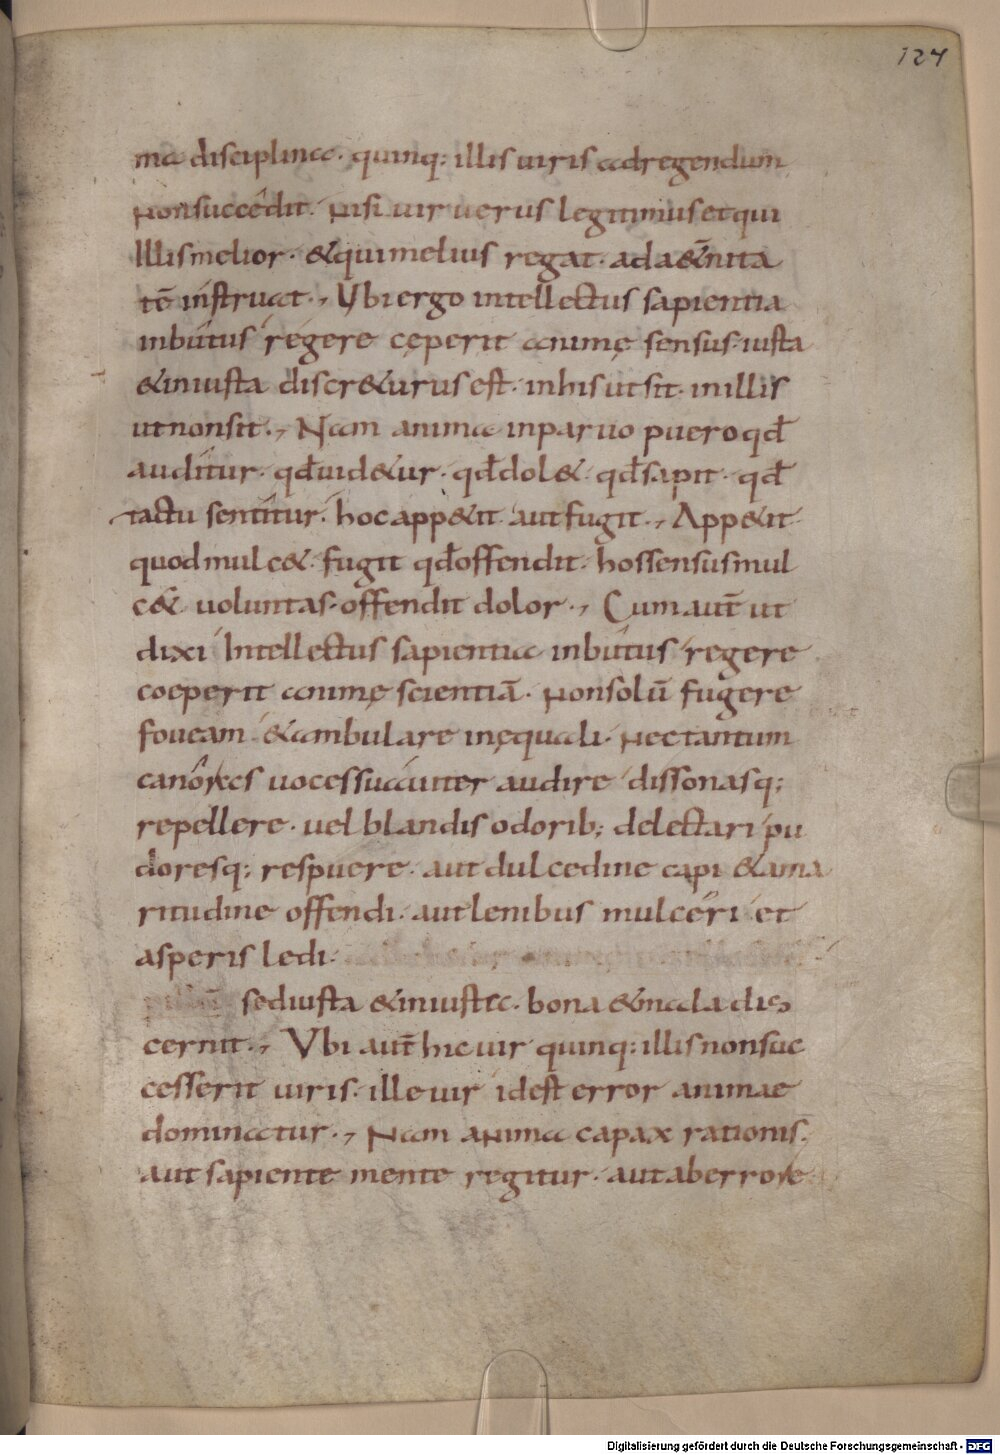 127
ma disciplina· quinq; illis uiris adregendum
Nonsuccedit. Nisi uir uerus legitimus et qui
Illis melior· & qui melius regat· ad a&̄nita
tē instruat·, Vbi ergo intellectus sapientia
inbutus regere cęperit animę sensus· iusta
& iniusta discr&urus est· inhis ut sit· inillis
ut non sit·, Nam anima inparuo puero qđ
auditur· qđ uid&ur· qđ dol&· qđ sapit· qđ
tactu sentitur· hoc app&it· aut fugit·, App&it·
quod mulc&· fugit qđ offendit· hos sensus mul
c& uoluntas· offendit dolor·, Cum aut̄ ut
dixi Intellectus sapientia inbutus regere
coeperit animę scientiā· Non solū fugere
foueam & ambulare inęquali· Nec tantum
canoras uoces suauiter audire dissonasq;
repellere· uel blandis odorib; delectari pu
doresq; respuere· aut dulcedine capi & ama
ritudine offendi· aut lenibus mulceri et
asperis ledi·
sed iusta & iniusta· bona & mala dis
cernit·, Vbi aut̄ hic uir quinq; illis non suc
cesserit uiris· ille uir id est error animae
dominatur·, Nam aNima capax rationis·
aut sapiente mente regitur· aut ab errore
Digitalisierung gefördert durch die Deutsche Forschungsgemeinschaft - DFG